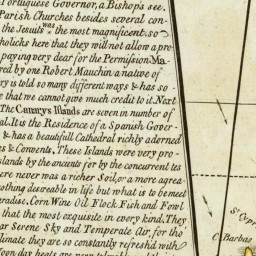 Portuguese Governor, a Bishop's see.
Parish Churches besides several con
the Jesuits was the most magnificent, so
holicks here that they will not allow a pro
paying very dear for the Permission. Ma
red by one Robert Mauchin a native of
ry is told so many different ways & has so
e that we cannot give much credit to it. Next
The Canarys Islands are seven in number of
al. It is the Residence of a Spanish Gover
& has a beautifull Cathedral richly adorned
s & Convents. These Islands were very pro
slands by the ancients for by the concurrent tes
ere never was a richer Soil, or a more agrea
othing desireable in life but what is to be meet
aradise. Corn Wine Oil Flock Fish and Fowl
that the most exquisite in every kind. They
ar Serene Sky and Temperate Air, for the
limate they are so constantly refreshd with
St. Cypr
C. Barbas